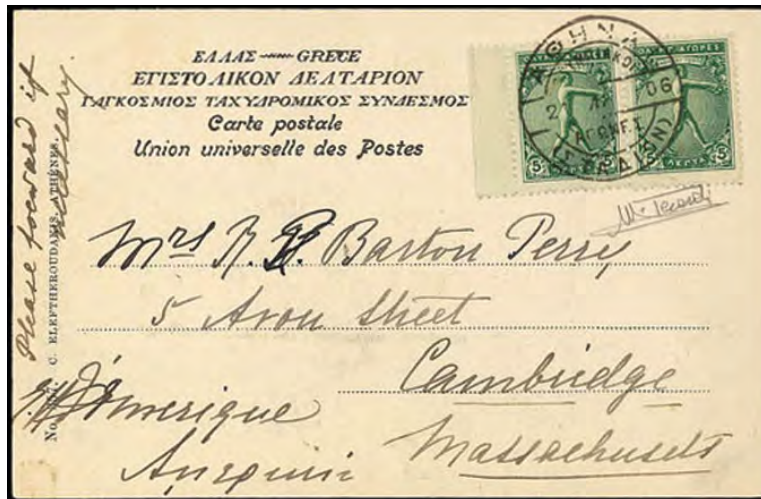 ΕΛΛΑΣ GRECE
ΕΠΙΣΤΟΛΙΚΟΝ ΔΕΛΤΑΡΙΟΝ
ΠΑΓΚΟΣΜΙΟΣ ΤΑΧΥΔΡΟΜΙΚΟΣ ΣΥΝΔΕΣΜΟΣ
Carte postale
Union universelle des Postes
ΑΘΗΝΑ
06
ΣΤΑΔΙΟΝ
5
5
ΛΕΠΤΑ
Mrs R. B. Barton Perry
5 Avon Street
Cambridge
Massachusets
Amerique
Please forward if
necessary.
C. ELEFTHEROUDAKIS, ATHÈNES.